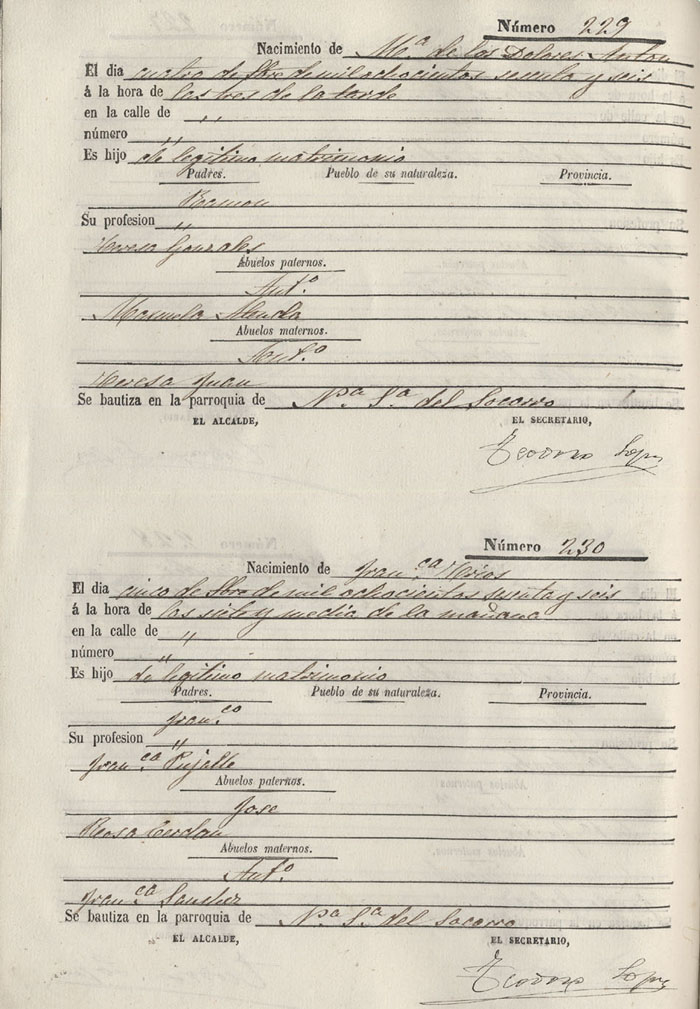 Número 229
Nacimiento de Mª de los Dolores Anton
El dia cuatro de 8bre de mil ochocientos sesenta y seis
á la hora de las tres de la tarde
en la calle de "
número "
Es hijo de legitimo matrimonio
Padres. Pueblo de su naturaleza. Provincia.
Ramon
Su profesion "
Teresa Gonzales
Abuelos paternos.
Antº
Manuela
Abuelos maternos.
Antº
Teresa Juan
Se bautiza en la parroquia de Nª Sª del Socorro
EL ALCALDE, EL SECRETARIO,
Teodoro Lopez
Número 230
Nacimiento de Franca
El dia cinco de 8bre de mil ochocientos sesenta y seis
á la hora de las siete y media de la mañana
en la calle de "
número "
Es hijo de legitimo matrimonio
Padres. Pueblo de su naturaleza. Provincia.
Franco
Su profesion "
Franca Pujalte
Abuelos paternos.
Jose
Rosa Cerdan
Abuelos maternos.
Antº
Franca Sanchez
Se bautiza en la parroquia de Nª Sª del Socorro
EL ALCALDE, EL SECRETARIO,
Teodoro Lopez